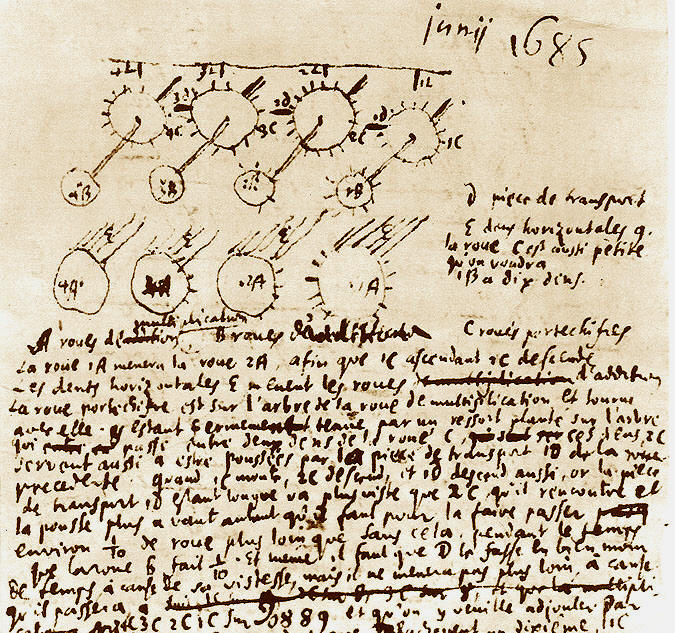 junij 1685
4L 3L 2L 1L
3d 2d 1d
4C 3C 2C 1C
4B 3B 2B 1B
D piece de transport
E dens horizontales q.
la roue C est aussi petite
qu'on voudra
1B a dix dens.
4A 3A 2A 1A
A roues de multiplication B roues d' C roues portechifres
La roue 1A menera la roue 2A, afin que 1C ascendant 2C descende
Les dents horizontales E menent les roues d'addition
La roue portechifre est sur l'arbre de la roue de multiplication et tourne
avec elle estant fermement tenue par un ressort planté sur l'arbre
qui passe entre deux dens de la roue C, ces dens 2C
servent aussi a estre poussées par la piece de transport 1D de la roue
precedente. quand 1C monte, 2C descend, et 1D descend aussi, or la piece
de transport 1D estant longue va plus viste que 2C, qu'il rencontre et
la pousse plus avant autant qu'il faut pour la faire passer
environ 1/10 de roue plus loin que sans cela, pendant le temps
que la roue B fait 1/10. Et meme il faut que D le fasse en bien moins
de temps, à cause de sa vistesse, mais il ne menera pas plus loin, à cause
qu'il passera
3C 2C 1C sur 9889 et qu'on y veuille adjouter par
dixieme, 1C